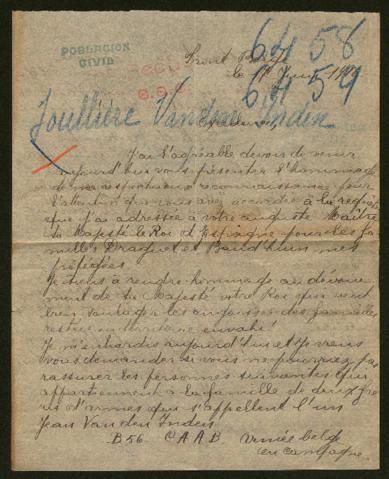 POBLACION
CIVIL
6458
6459
Front Belge
le
Joullière Vanden Inden
J'ai l'agréable devoir de venir
aujourd'hui vous présenter l'hommage
de ma respectueuse reconnaissance pour
l'attention que vous avez accordée à la requête
que j'ai adressée à votre auguste Maître
Sa Majesté le Roi d'Espagne pour les fa
milles Draguet et Baudhuin mes
protégées.
Je tiens à rendre hommage au dévoue
ment de Sa Majesté votre Roi qui veut
bien soulager les angoisses des familles
restées en territoire envahi.
Je m'enhardis aujourd'hui et je viens
vous demander si vous ne pourriez pas
rassurer les personnes suivantes qui
appartiennent à la famille de deux frè
res d'armes qui s'appellent l'un
Jean Vanden Inden
B56 C A A B Armée belge
en campagne